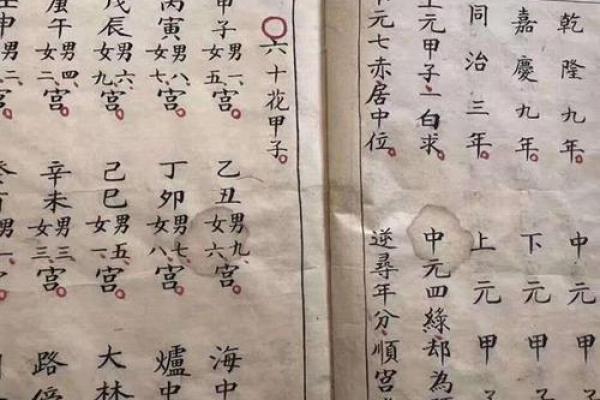 乾隆九年。中元甲子
嘉慶九年。下元甲子
同治三年。上元甲子
上元甲子一白求。中元四綠却為
元七赤居中位。逆尋年分順宮
〇六十花甲子。
甲子男一女五宮。乙丑男九女六宮。海中
丙寅男八女七宮。丁卯男七女八宮。爐中
戊辰男六女九宮。己巳男五女一宮。大林
庚午男四女二宮。辛未男三女三宮。路傍
申男二宮。酉男一